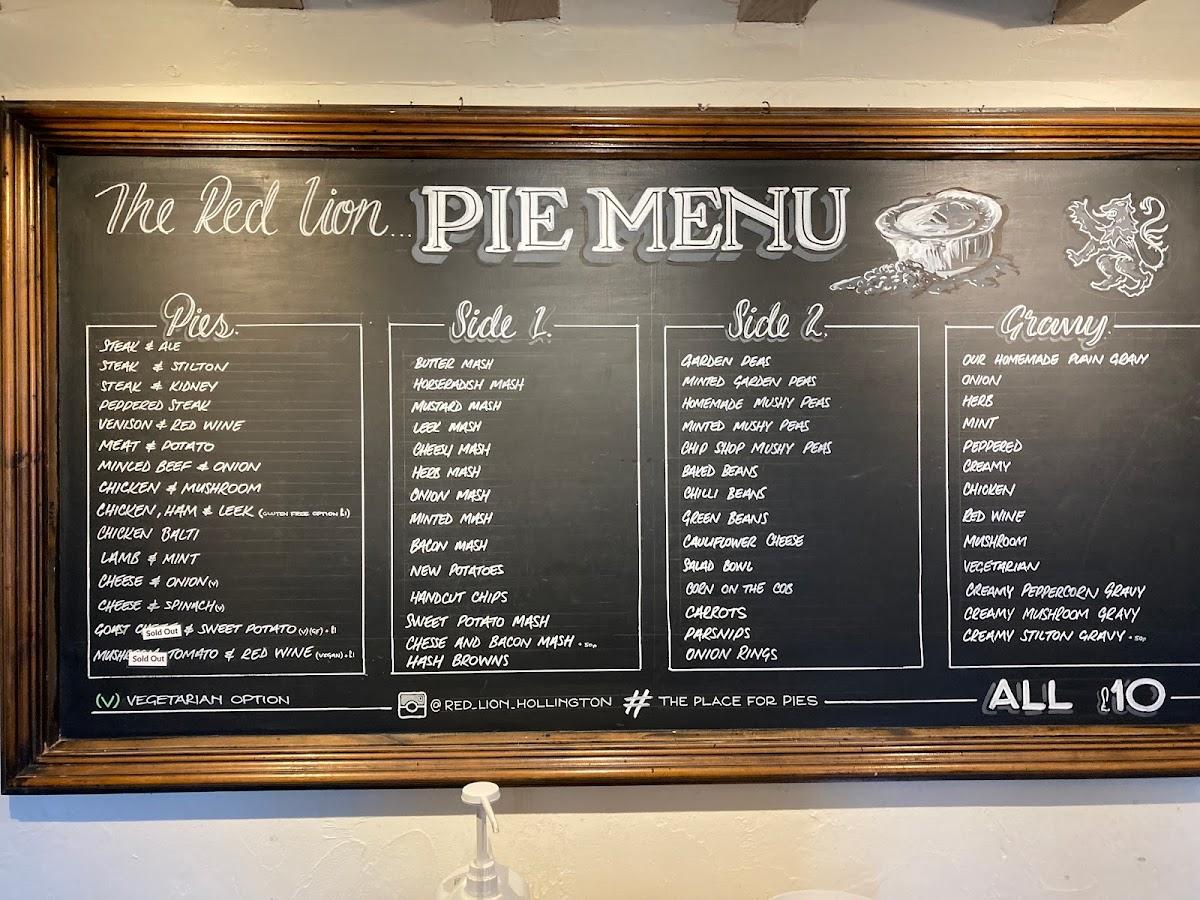 The Red Lion... PIE MENU
Pies.
STEAK & ALE
STEAK & STILTON
STEAK & KIDNEY
PEPPERED STEAK
VENISON & RED WINE
MEAT & POTATO
MINCED BEEF & ONION
CHICKEN & MUSHROOM
CHICKEN, HAM & LEEK (GLUTEN FREE OPTION £1)
CHICKEN BALTI
LAMB & MINT
CHEESE & ONION (V)
CHEESE & SPINACH (V)
GOAST Sold Out & SWEET POTATO (V) (GF) + £1
Sold Out TOMATO & RED WINE (VEGAN) + £1
Side 1.
BUTTER MASH
HORSERADISH MASH
MUSTARD MASH
LEEK MASH
CHEESY MASH
HERB MASH
ONION MASH
MINTED MASH
BACON MASH
NEW POTATOES
HANDCUT CHIPS
SWEET POTATO MASH
CHESSE AND BACON MASH + 50p
HASH BROWNS
Side 2.
GARDEN PEAS
MINTED GARDEN PEAS
HOMEMADE MUSHY PEAS
MINTED MUSHY PEAS
CHIP SHOP MUSHY PEAS
BAKED BEANS
CHILLI BEANS
GREEN BEANS
CAULIFLOWER CHEESE
SALAD BOWL
CORN ON THE COB
CARROTS
PARSNIPS
ONION RINGS
Gravy.
OUR HOMEMADE PLAIN GRAVY
ONION
HERB
MINT
PEPPERED
CREAMY
CHICKEN
RED WINE
MUSHROOM
VEGETARIAN
CREAMY PEPPERCORN GRAVY
CREAMY MUSHROOM GRAVY
CREAMY STILTON GRAVY + 50p
(V) VEGETARIAN OPTION
@RED_LION_HOLLINGTON # THE PLACE FOR PIES
ALL £10